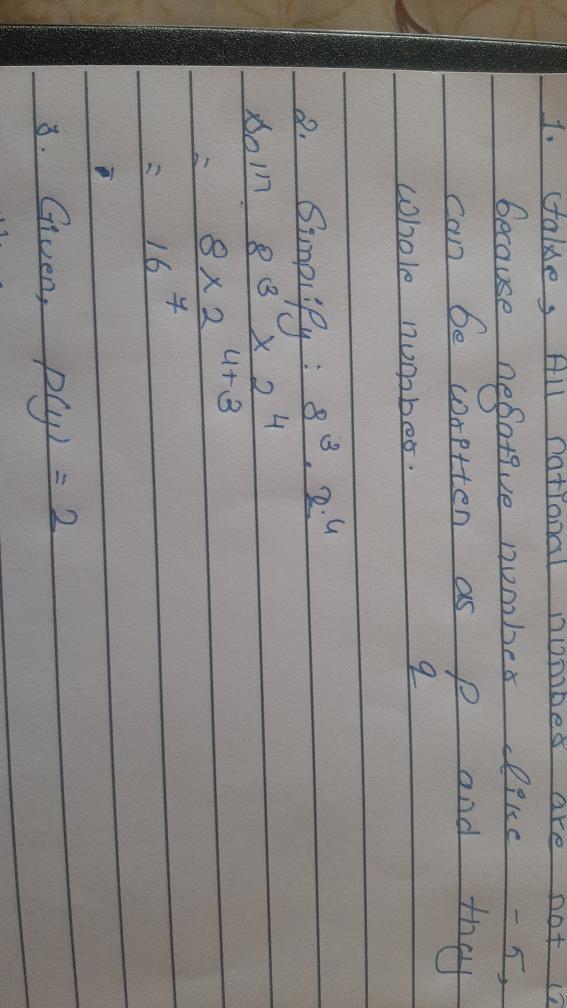 1. False, All rational number are not
because negative number like -5,
can be written as p and they
q
whole number.
2. Simplify : 8³ . 2⁴
Soln 8³ × 2⁴
= 8 × 2⁴⁺³
= 16⁷
3. Given, P(y) = 2